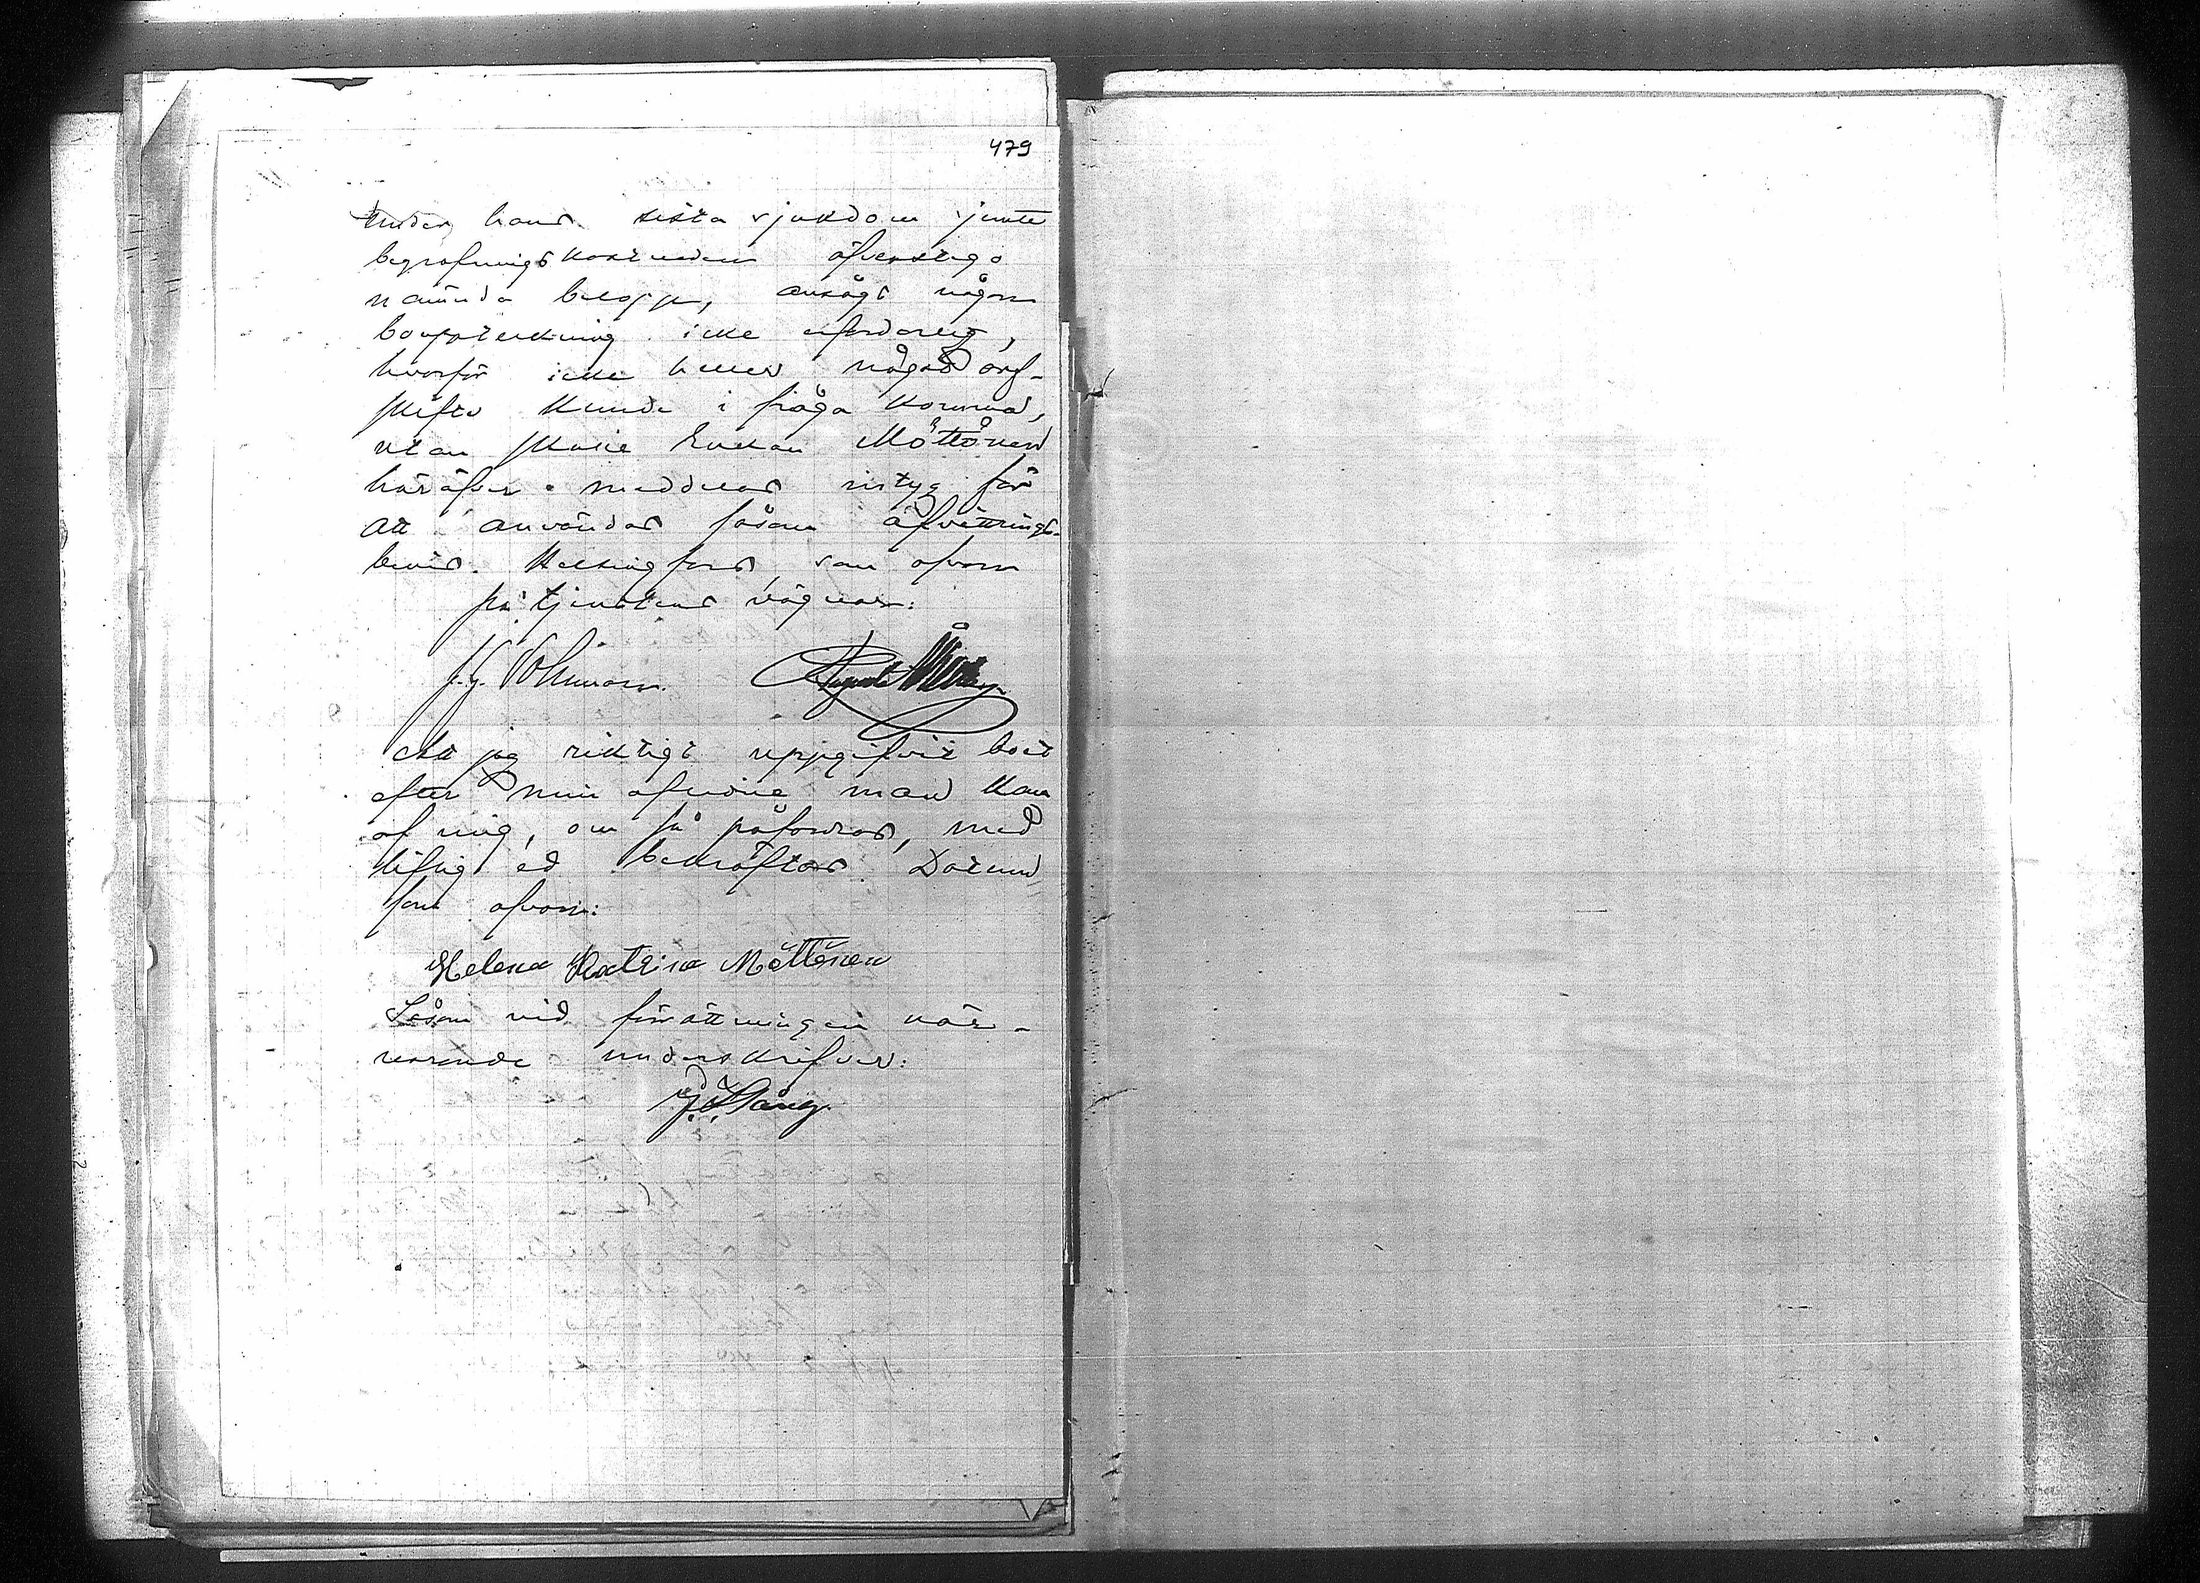 479
under hans sista sjukdom jemte
begrafningskostnaden öfverstiga
nämnda belopp, ansågs någon
bouppteckning icke erforderlig,
hvarför icke heller något arf-
skifte kunde i fråga komma,
utan skulle Enkan Möttönen
häröfver meddelas intyg för
att användas såsom afvittrings-
bevis. Helsingfors, som ofvan
på tjenstens vägnar:
Att jag riktigt uppgifvit boet
efter min aflidne man kan
af mig, om så påfordras, med
liflig ed bekräftas. Datum
som ofvan:
Helena Katrina Möttönen
Såsom vid förrättningen när-
varande underskrifver: